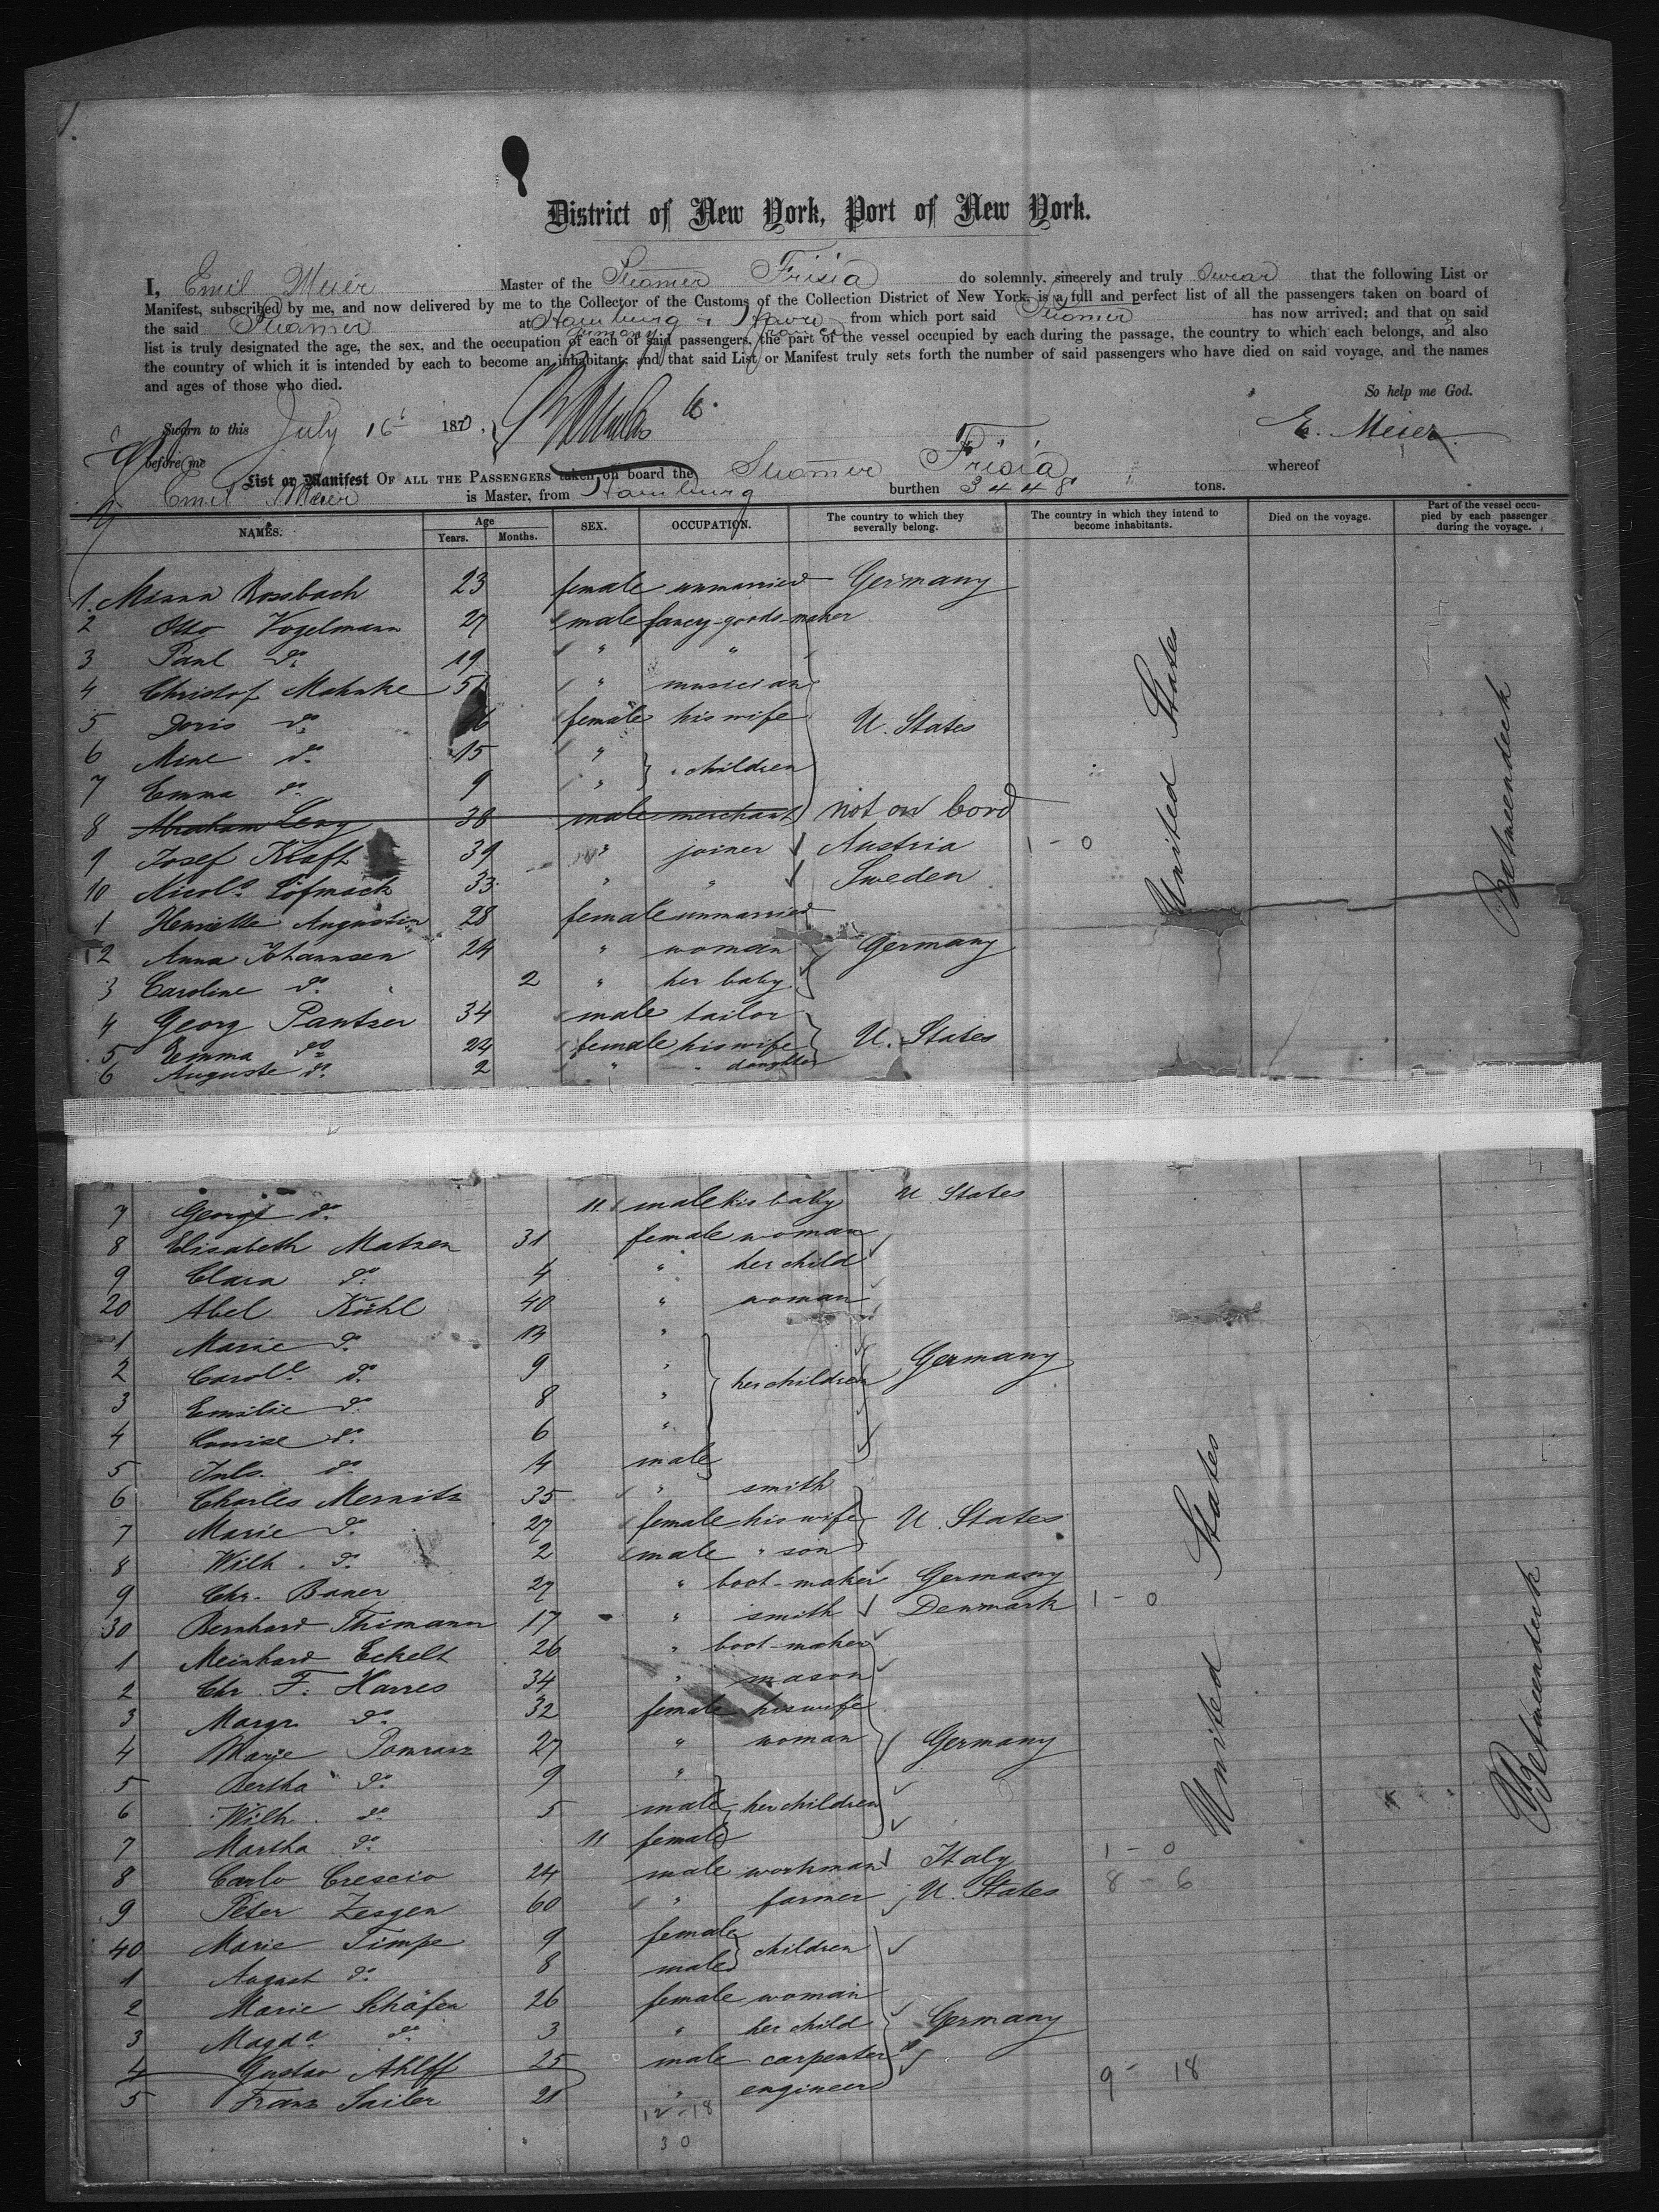 District of New York, Port of New York.
I, Emil Meier Master of the Steamer Frisia do solemnly, sincerely and truly swear that the following List or
Manifest, subscribed by me, and now delivered by me to the Collector of the Customs of the Collection District of New York, is a full and perfect list of all the passengers taken on board of
the said Steamer at Hamburg & Havre from which port said Steamer has now arrived; and that on said
Germany France
list is truly designated the age, the sex, and the occupation of each of said passengers, the part of the vessel occupied by each during the passage, the country to which each belongs, and also
the country of which it is intended by each to become an inhabitant; and that said List or Manifest truly sets forth the number of said passengers who have died on said voyage, and the names
and ages of those who died.
So help me God.
Sworn to this July 16 1870.
E. Meier
before me
List or Manifest OF ALL THE PASSENGERS taken on board the Steamer Frisia whereof
Emil Meier is Master, from Hamburg burthen 3448 tons.
NAMES. Age Years. Months. SEX. OCCUPATION. The country to which they severally belong. The country in which they intend to become inhabitants. Died on the voyage. Part of the vessel occupied by each passenger during the voyage.
1. Minna Rossbach 23 female unmarried Germany
2 Otto Vogelmann 27 male fancy-goods-maker
3 Paul do. 19 " "
4 Christof Mahnke 51 " musician
5 Doris do. female his wife U. States
6 Mine do. 15 "
7 Emma do. 9 " " children
8 Abraham Levy 38 male merchant not on bord
9 Josef Kraft 39 " joiner Austria 1 - 0
10 Nicols. Löfmack 33 " " Sweden
1 Henriette Augustin 28 female unmarried
12 Anna Johannsen 24 " woman Germany
3 Caroline do. 2 " her baby
4 Georg Pantzer 34 male tailor
5 Emma do. 24 female his wife U. States
6 Auguste do. 2 " " daughter
United States
Betweendeck
7 George do. 11 male his baby U States
8 Elisabeth Matzen 31 female woman
9 Clara do. 4 " her child
20 Abel Kühl 40 " woman
1 Marie do. "
2 Carole. do. 9 " Germany
3 Emilie do. 8 " her children
4 Louise do. 6 "
5 Juls. do. 4 male
6 Charles Mernitz 35 " smith
7 Marie do. 27 female his wife U. States
8 Wilh. do. 2 male " son
9 Chr. Bauer 29 " boot-maker Germany
30 Bernhard Thimann 17 " smith Denmark 1 - 0
1 Meinhard Eckelt 26 " boot-maker
2 Chr. F. Harres 34 " mason
3 Margr. do. 32 female his wife
4 Marie 27 " woman Germany
5 Bertha do. 9 "
6 Wilh. do. 5 male her children
7 Martha do. 11 female
8 Carlo Crescio 24 male workman Italy 1 - 0
9 Peter Zesgen 60 " farmer U. States 8 - 6
40 Marie Timpe 9 female
1 August do. 8 male children
2 Marie Schäfer 26 female woman
3 Magda. do. 3 " her child Germany
4 Gustav Ahlff 25 male carpenter
5 Franz Sailer 21 " engineer 9 - 18
12 - 18
30
United States
Betweendeck